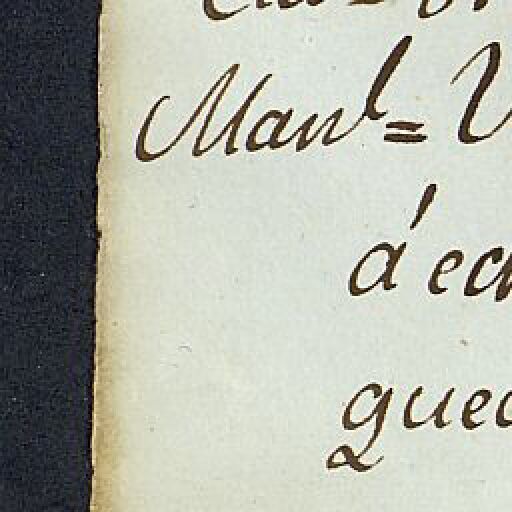 Man^l= V
á ec
que